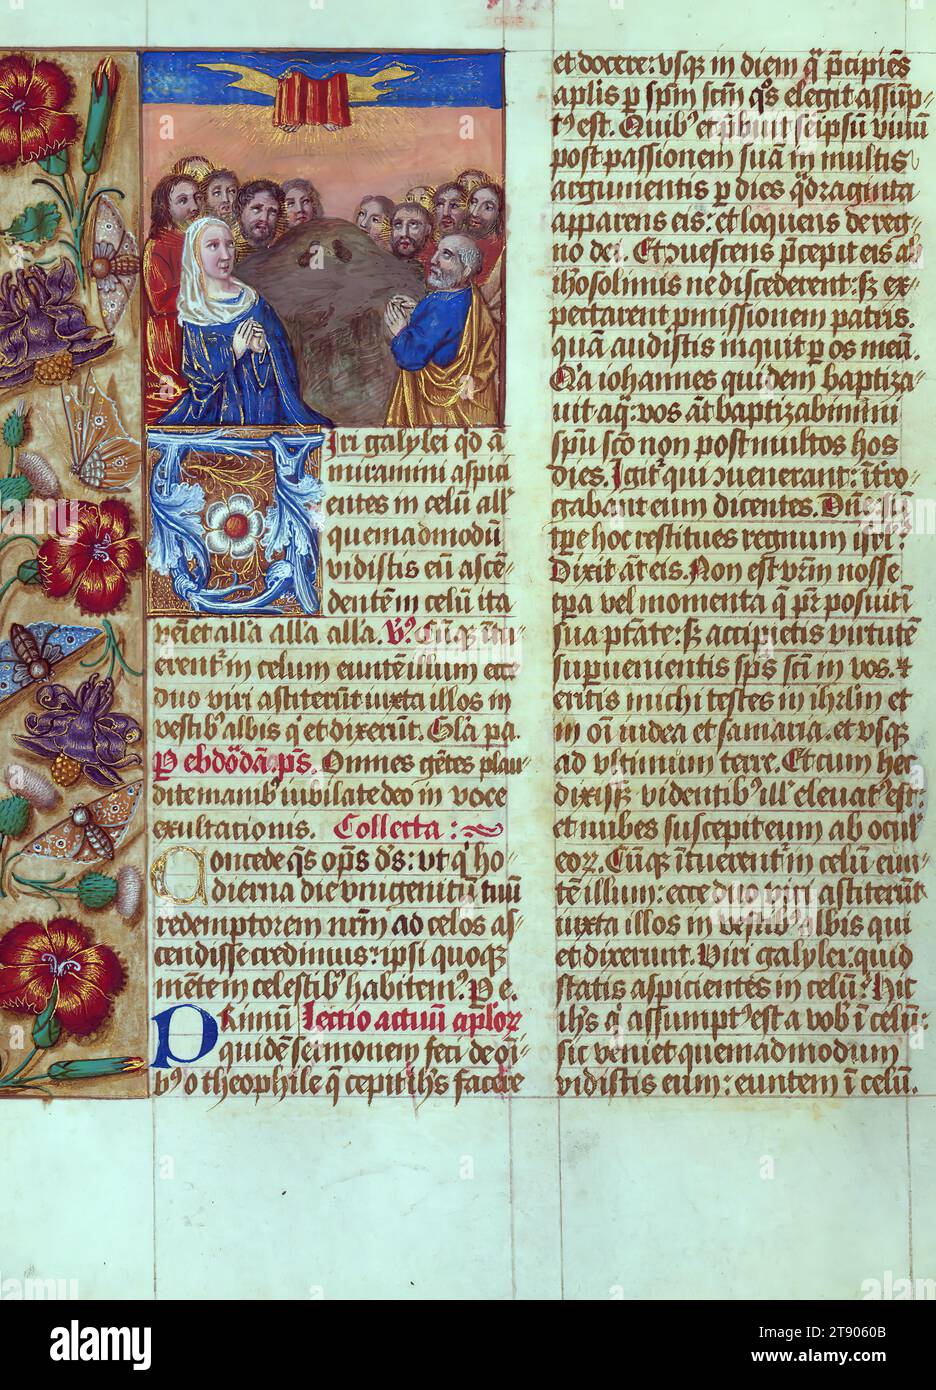 Viri galylei qd a
miramini aspici
entes in celū all'
quemadmodū
vidistis eū ascē
dentē in celū ita
veniet all'a all'a all'a. V's Cūq; ītu
erent' in celum euntē illum ecce
duo viri astiterūt iuxta illos in
vestib' albis q' et dixerūt. Gl'a pa.
Omnes gētes plau
dite manib' iubilate deo in voce
exultationis. Collecta :~
Concede q's op̄s d's: ut q' ho
dierna die unigenitū tuū
redemptorem nr̄m ad celos as
cendisse credimus: ipsi quoq;
mēte in celestib' habitem'. P e.
Primū Lectio actuū ap'lor
quidē sermonem feci de oī
b' o theophile q̄ cepit ih's facere
et docere: usq; in diem q̄ p̄cipiēs
ap'lis p sp̄m sc̄m q's elegit assūp
t' est. Quib' et p̄buit seip̄sū vivū
post passionem suā in multis
argumentis p dies q̄draginta
apparens eis: et loquens de reg
no dei. Et 9vescens p̄cepit eis ab
ih'osolimis ne discederent: s; ex
pectarent p̄missionem patris.
quā audistis inquit p os meū.
Q'a iohannes quidem baptiza
uit aq̄: vos āt baptizabimini
sp̄u sc̄o non post multos hos
dies. Igit' qui 9uenerant: īt'ro
gabant eum dicentes. Dn̄e si ī
tp̄e hoc restitues regnum isrl'?
Dixit āt eis. Non est vr̄m nosse
tp̄a vel momenta q̄ pr̄ posuit ī
sua p̄tate: s; accipietis virtutē
supvenientis sp̄s sc̄i in vos. et
eritis michi testes in ihrl'm et
in oī iudea et samaria. et usq;
ad ultimum terre. Et cum hec
dixisz videntib' ill' elevat' est:
et nubes suscepit eum ab ocul'
eor. Cūq; ītuerent' in celū eun
tē illum: ecce duo viri astiterūt
iuxta illos in vestib' albis qui
et dixerunt. Viri galylei: quid
statis aspicientes in celū? Hic
ih's q' assumpt' est a vob ī celū:
sic veniet quemadmodum
vidistis eum: euntem ī celū.
alamy
Image ID: 2T9060B
www.alamy.com